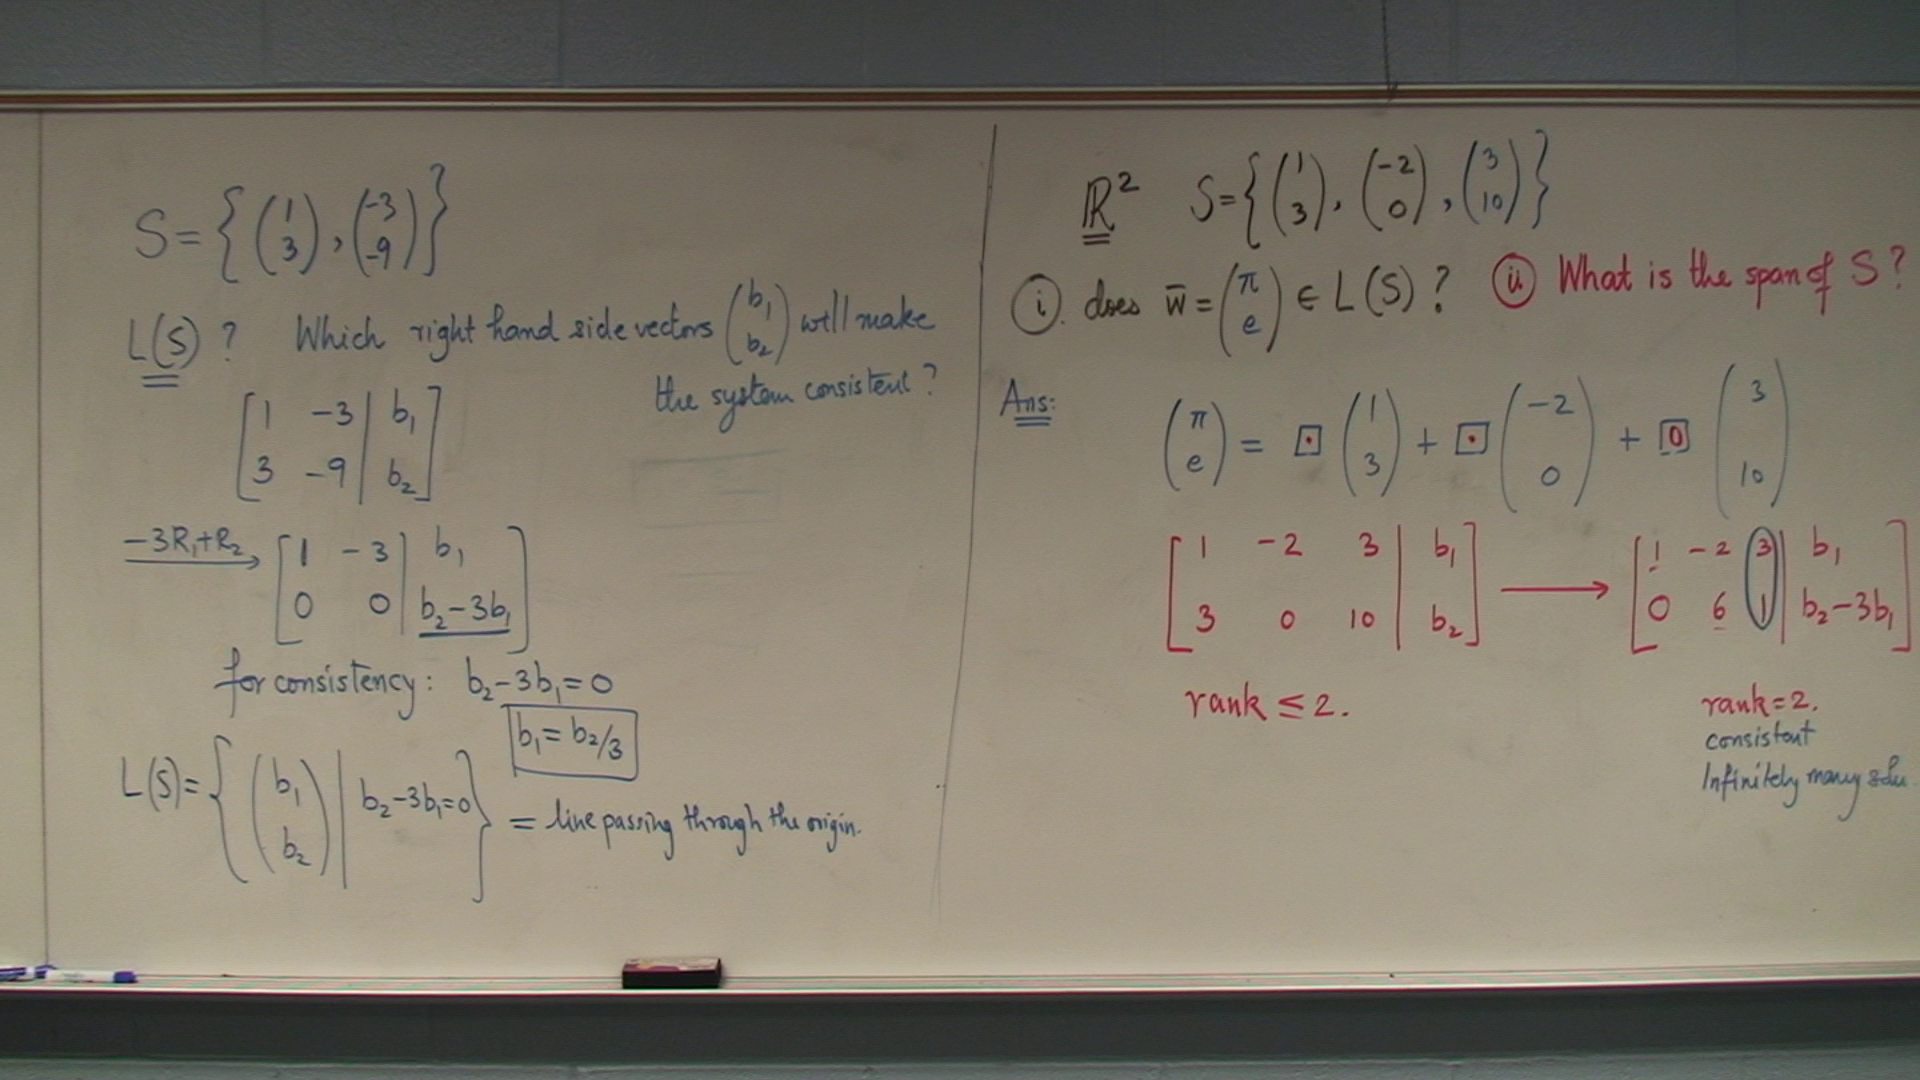 S = { (1 3), (-3 -9) }
L(S) ? Which right hand side vectors (b₁ b₂) will make
the system consistent ?
[ 1 -3 | b₁ ]
[ 3 -9 | b₂ ]
-3R₁+R₂ → [ 1 -3 | b₁ ]
[ 0 0 | b₂-3b₁ ]
for consistency: b₂-3b₁=0
b₁ = b₂/3
L(S) = { (b₁ b₂) | b₂-3b₁=0 } = line passing through the origin.
ℝ² S = { (1 3), (-2 0), (3 10) }
(i). does w̄ = (π e) ∈ L(S) ? (ii) What is the span of S ?
Ans: (π e) = ⊡ (1 3) + ⊡ (-2 0) + 0 (3 10)
[ 1 -2 3 | b₁ ] → [ 1 -2 3 | b₁ ]
[ 3 0 10 | b₂ ] [ 0 6 1 | b₂-3b₁ ]
rank ≤ 2. rank = 2.
consistent
Infinitely many soln.